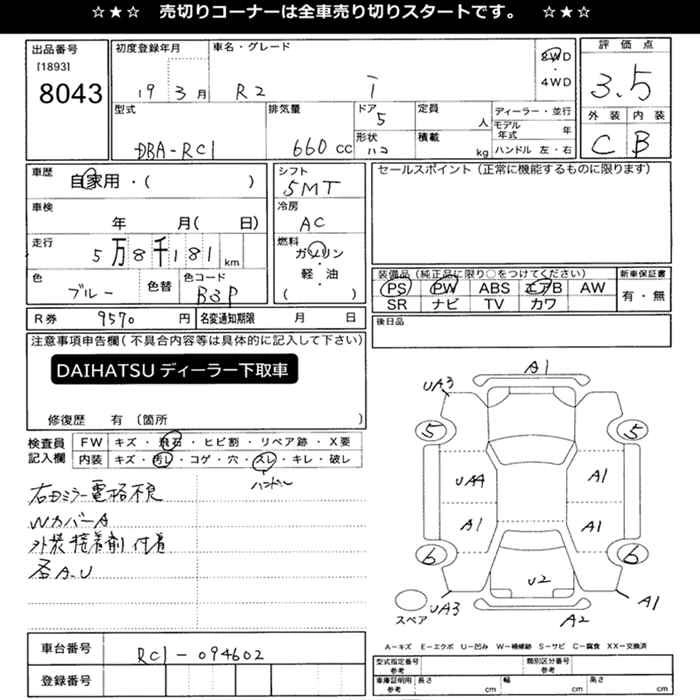 ☆★☆ 売切りコーナーは全車売り切りスタートです。 ☆★☆
出品番号
[1893]
8043
初度登録年月
19 3月
車名・グレード
R2 i
2WD
・
4WD
評価点
3.5
外装 内装
C B
型式
DBA-RC1
排気量
660 cc
ドア
5
形状
ハコ
定員
人
積載
kg
ディーラー・並行
モデル年式 年
ハンドル 左・右
車歴
自家用・( )
車検
年 月( 日)
走行
5万8千181 km
色
ブルー
色替
色コード
B3P
シフト
5MT
冷房
AC
燃料
ガソリン
・
軽・油
( )
セールスポイント(正常に機能するものに限ります)
装備品(純正品に限り○をつけてください)
PS PW ABS エアB AW
SR ナビ TV カワ
新車保証書
有・無
後日品
R券 9570 円
名変通知期限 月 日
注意事項申告欄(不具合内容等は具体的に記入して下さい)
DAIHATSU ディーラー下取車
修復歴 有 〔箇所 〕
検査員
記入欄
FW キズ・飛石・ヒビ割・リペア跡・X要
内装 キズ・汚レ・コゲ・穴・スレ・キレ・破レ
ハンドル
右ミラー電格不良
WカバーA
外装接着剤付着
各A.U
車台番号 RC1-094602
登録番号
A1
UA3
5 5
UA4 A1
A1 A1
6 6
U2
スペア
UA3
A2
A1
A-キズ E-エクボ U-凹み W-補修跡 S-サビ C-腐食 XX-交換済
型式指定番号
参考
類別区分番号
参考
車庫証明用
参考
長さ cm 幅 cm 高さ cm